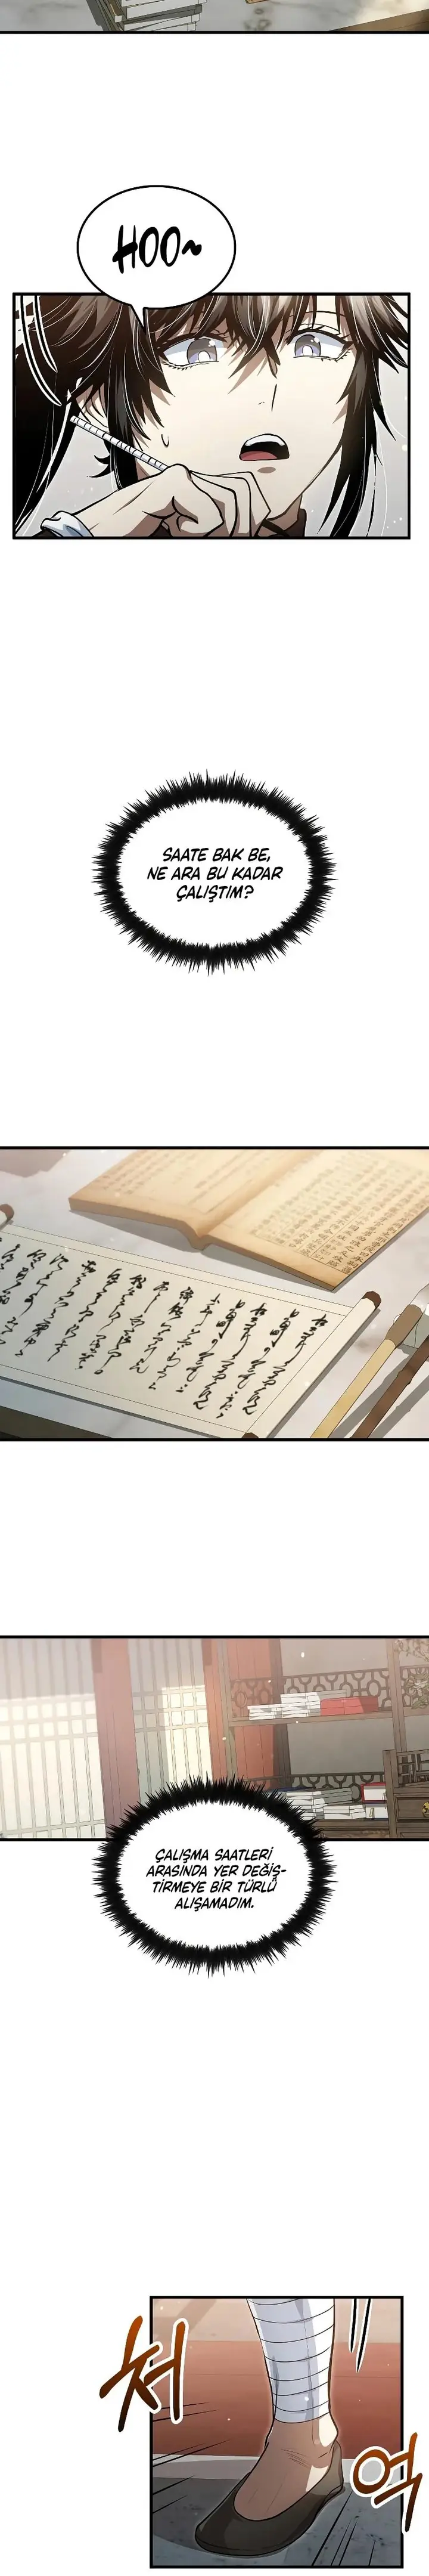 HOO~
SAATE BAK BE,
NE ARA BU KADAR
ÇALIŞTIM?
ÇALIŞMA SAATLERİ
ARASINDA YER DEĞİŞ-
TİRMEYE BİR TÜRLÜ
ALIŞAMADIM.
저
억